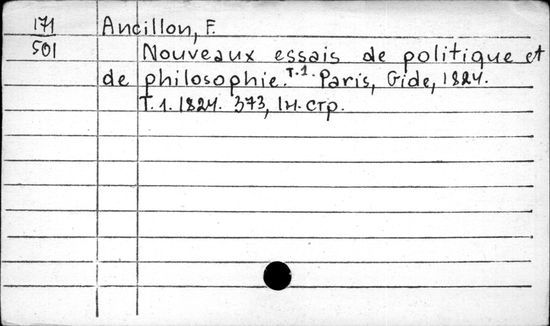 171 Ancillon, F.
501 Nouveaux essais de politique et
de philosophie. T.1. Paris, Gide, 1824.
Т.1. 1824. 373, 1н. стр.